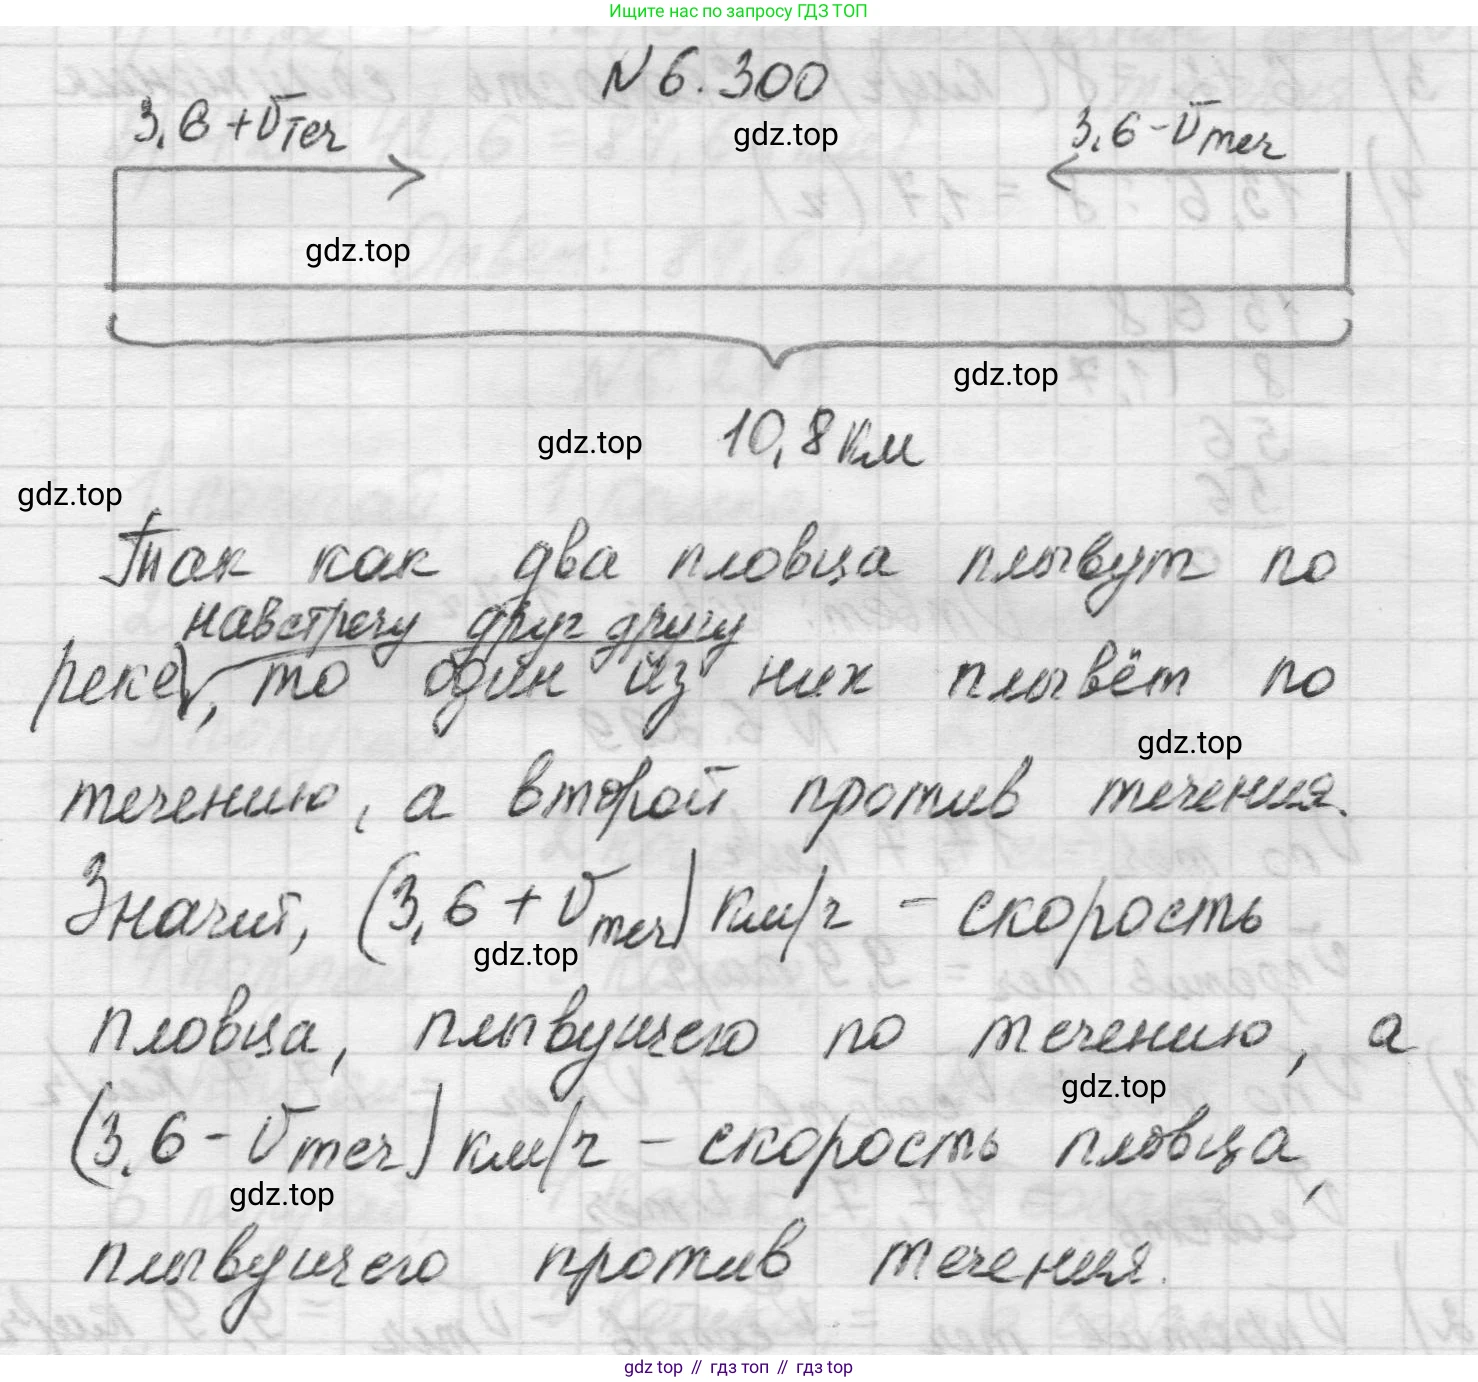 Ищите нас по запросу ГДЗ ТОП
N 6.300
3,6 + Vтеч
gdz.top
3,6 - Vтеч
gdz.top
gdz.top
10,8 км
gdz.top
gdz.top
Так как два пловца плывут по
навстречу друг другу
реке, то один из них плывёт по
gdz.top
течению, а второй против течения.
Значит, (3,6 + Vтеч) км/ч - скорость
gdz.top
пловца, плывущего по течению, а
gdz.top
(3,6 - Vтеч) км/ч - скорость пловца,
gdz.top
плывущего против течения.
gdz top // гдз топ // gdz top